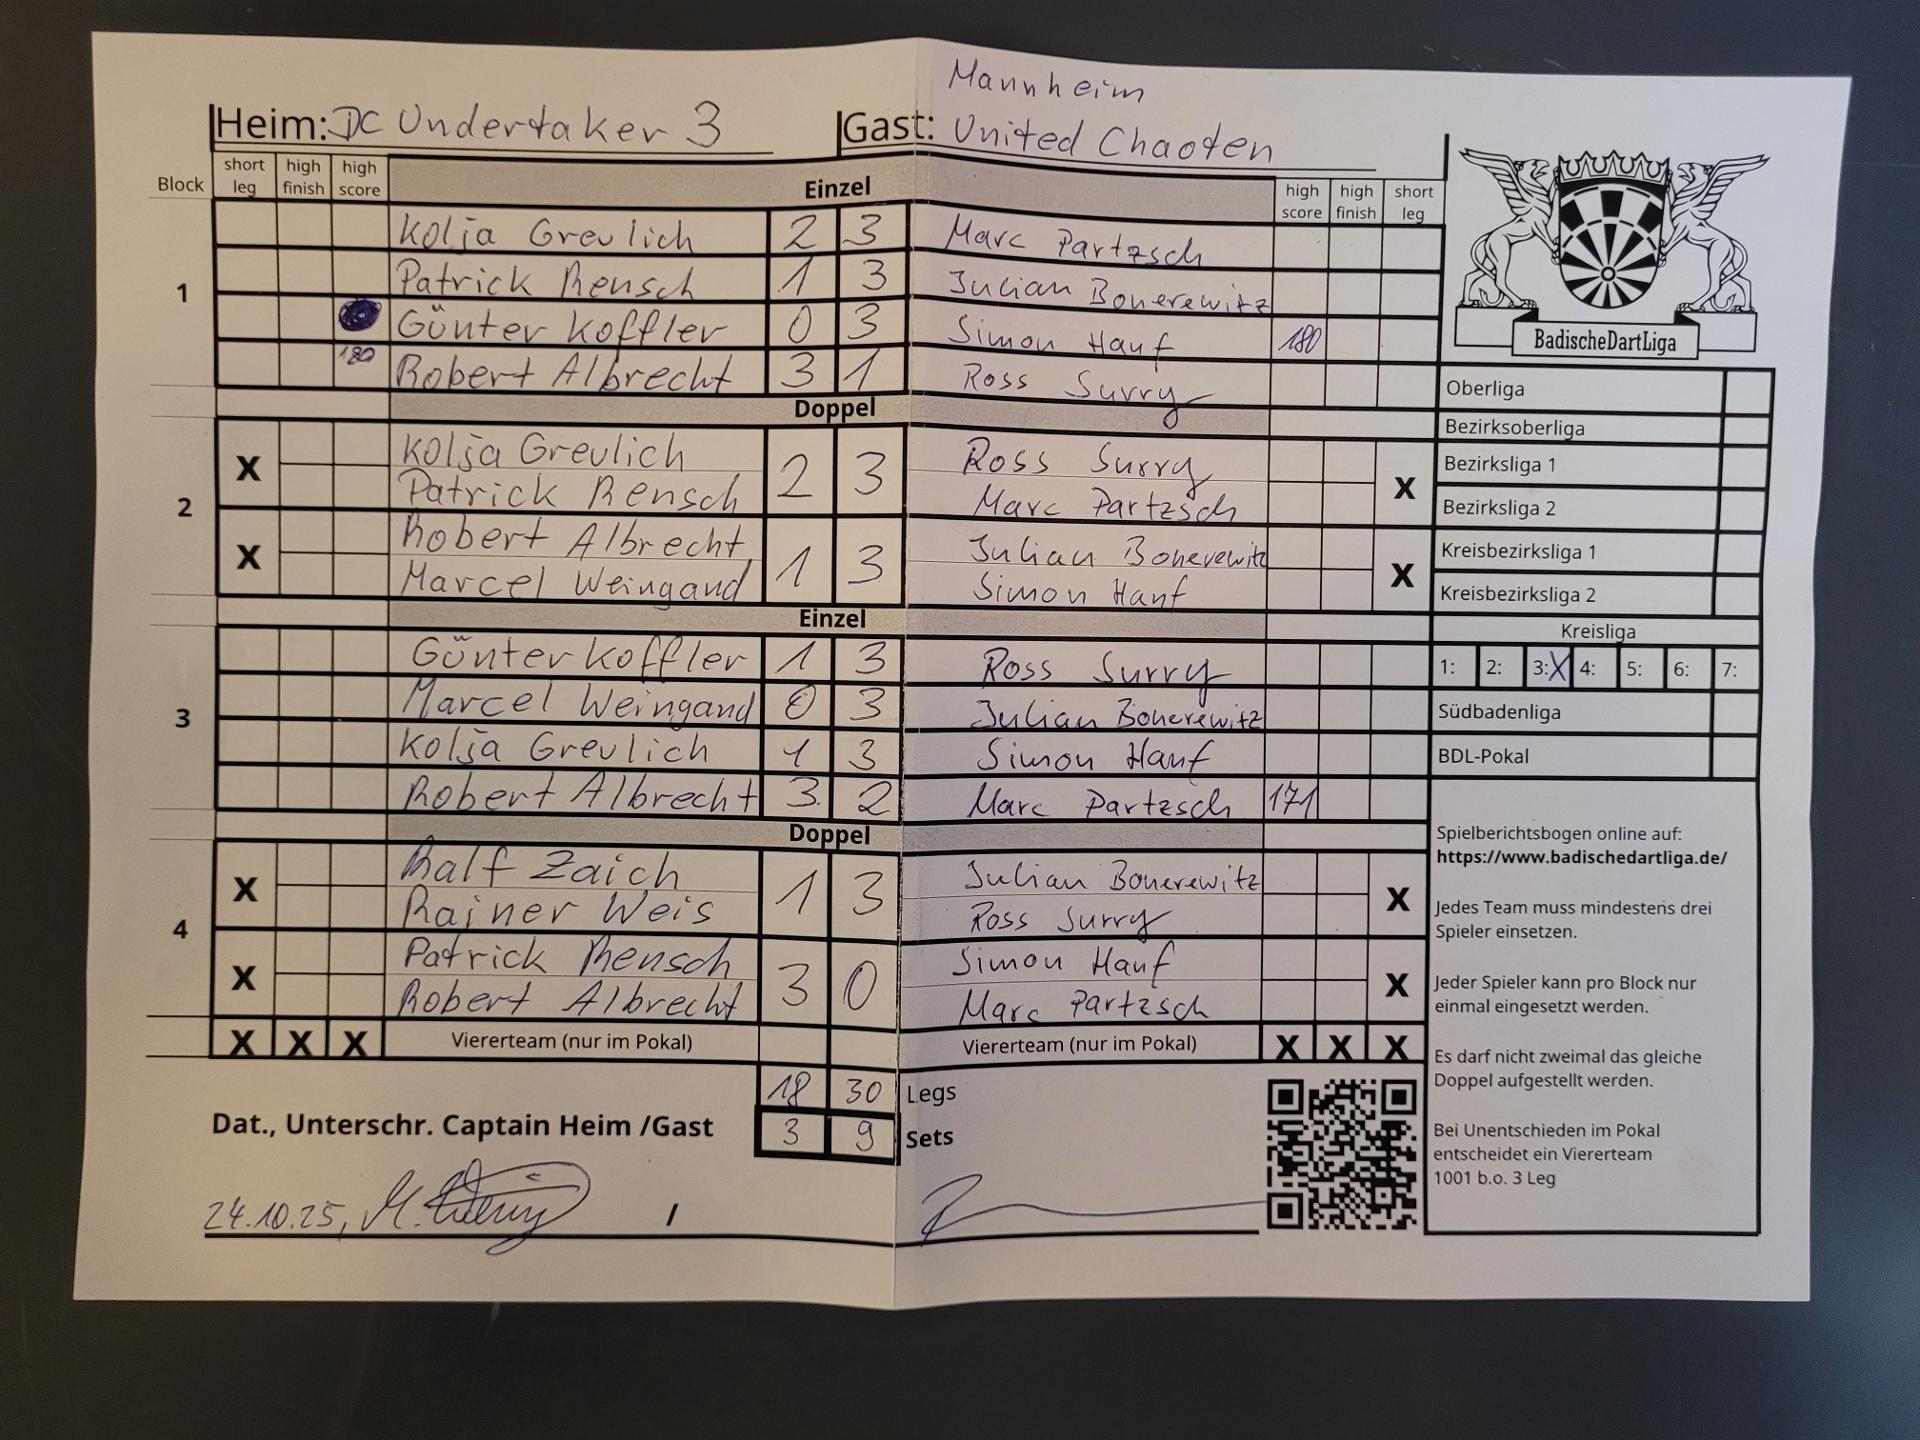 Mannheim
Heim: DC Undertaker 3 Gast: United Chaoten
Block short leg high finish high score Einzel high score high finish short leg
1
Kolja Greulich 2 3 Marc Partzsch
Patrick Rensch 1 3 Julian Bonerewitz
Günter Koffler 0 3 Simon Hauf 180
180 Robert Albrecht 3 1 Ross Surry
Doppel
2
X Kolja Greulich 2 3 Ross Surry X
Patrick Rensch Marc Partzsch
X Robert Albrecht 1 3 Julian Bonerewitz X
Marcel Weingand Simon Hauf
Einzel
3
Günter Koffler 1 3 Ross Surry
Marcel Weingand 0 3 Julian Bonerewitz
Kolja Greulich 1 3 Simon Hauf
Robert Albrecht 3 2 Marc Partzsch 171
Doppel
4
X Ralf Zaich 1 3 Julian Bonerewitz X
Rainer Weis Ross Surry
X Patrick Rensch 3 0 Simon Hauf X
Robert Albrecht Marc Partzsch
X X X Viererteam (nur im Pokal) Viererteam (nur im Pokal) X X X
18 30 Legs
3 9 Sets
Dat., Unterschr. Captain Heim /Gast
24.10.25, /
BadischeDartLiga
Oberliga
Bezirksoberliga
Bezirksliga 1
Bezirksliga 2
Kreisbezirksliga 1
Kreisbezirksliga 2
Kreisliga
1: 2: 3: X 4: 5: 6: 7:
Südbadenliga
BDL-Pokal
Spielberichtsbogen online auf:
https://www.badischedartliga.de/
Jedes Team muss mindestens drei
Spieler einsetzen.
Jeder Spieler kann pro Block nur
einmal eingesetzt werden.
Es darf nicht zweimal das gleiche
Doppel aufgestellt werden.
Bei Unentschieden im Pokal
entscheidet ein Viererteam
1001 b.o. 3 Leg